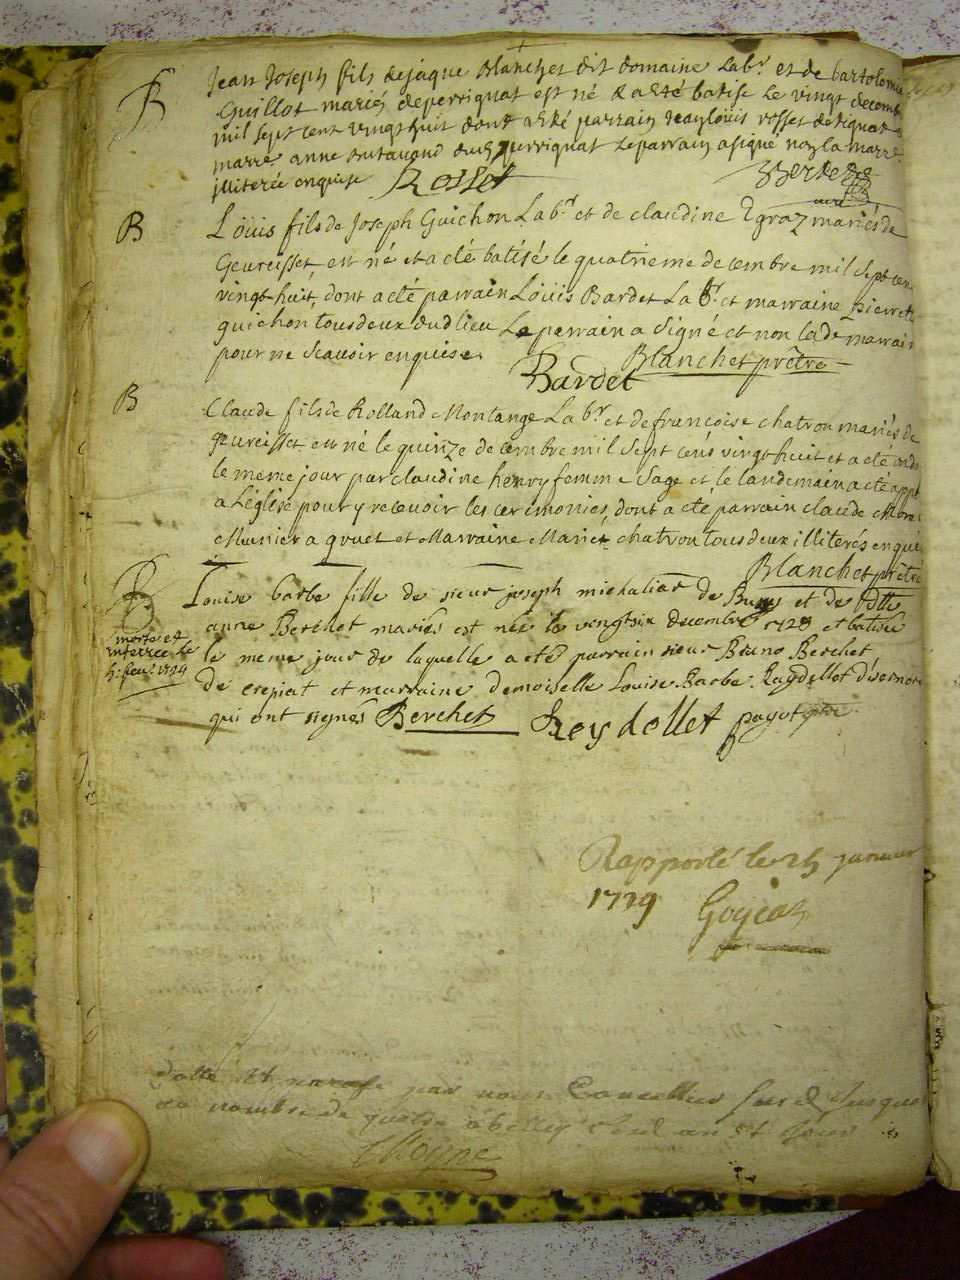 B
Jean Joseph fils de jaque Blanchet dit domaine Lab.r et de bartolomie
Guillot mariés de perrignat est né & a esté batisé Le vingt decemb
mil sept cent vingt huit dont a esté parrain louis rosset de
marre anne du perrignat Le parrain a signé non la marre
jlliterée enquise Rosset
B
Loüis fils de Joseph Guichon Lab.r et de claudine Egraz mariés de
Geureisset, est né et a eté batisé le quatrieme decembre mil Sept cen
vingt huit, dont a eté parrain Loüis Bardet Lab.r et marraine pierrette
guichon tous deux dud lieu Le parrain a Signé et non lade marrai
pour ne Scavoir enquise. Bardet Blanchet prêtre
B
Claude fils de Rolland Montange Lab.r et de francoise chatron mariés de
geureisset est né le quinze decembre mil Sept cens vingt huit et a eté ond
le meme jour par claudine henry femme Sage et le landemain a eté app
a L'église pour y recevoir les ceremonies, dont a eté parrain claude
Munier a et Marraine Mariet chatron tous deux illiterés enqui
Blanchet prêtre
B
morte et
enterrée le
Louise barbe fille de sieur joseph michallar de et de Dlle
anne Berchet mariés est née le vengtsix decembre 1728 et batisée
le meme jour de laquelle a eté parrain sieur Bruno Berchet
de crepiat et marraine demoiselle Louise Barbe Reydellet d'isernore
qui ont signés Berchet Reydellet payot ptre
Rapporté le 25 janvier
1729 Gojeat
Cotté et parafé par nous Conseiller jusque
au nombre de quatre à belley